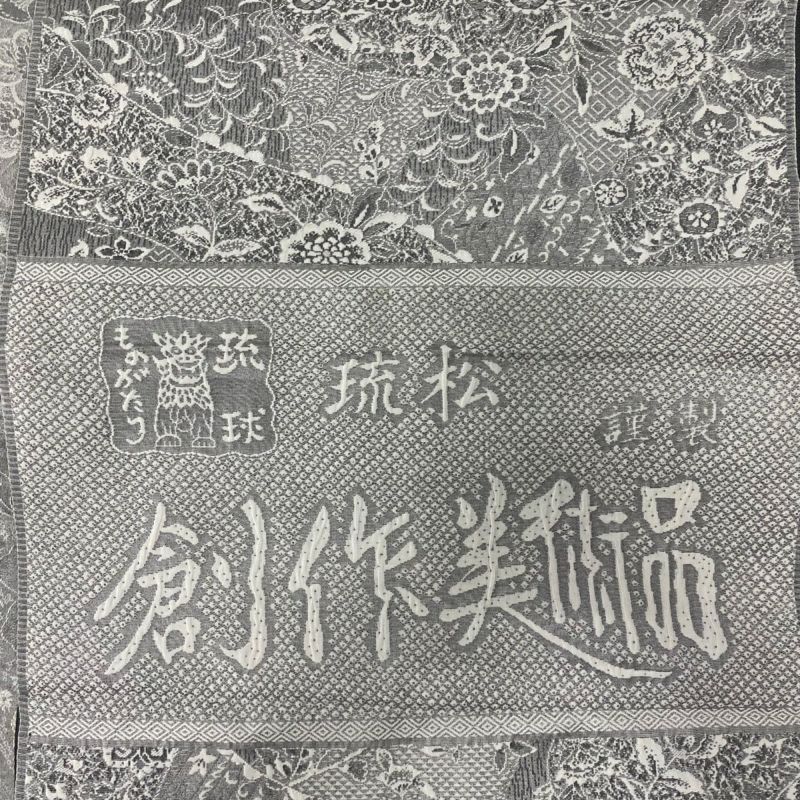 琉球
ものがたり
琉松
謹製
創作美術品